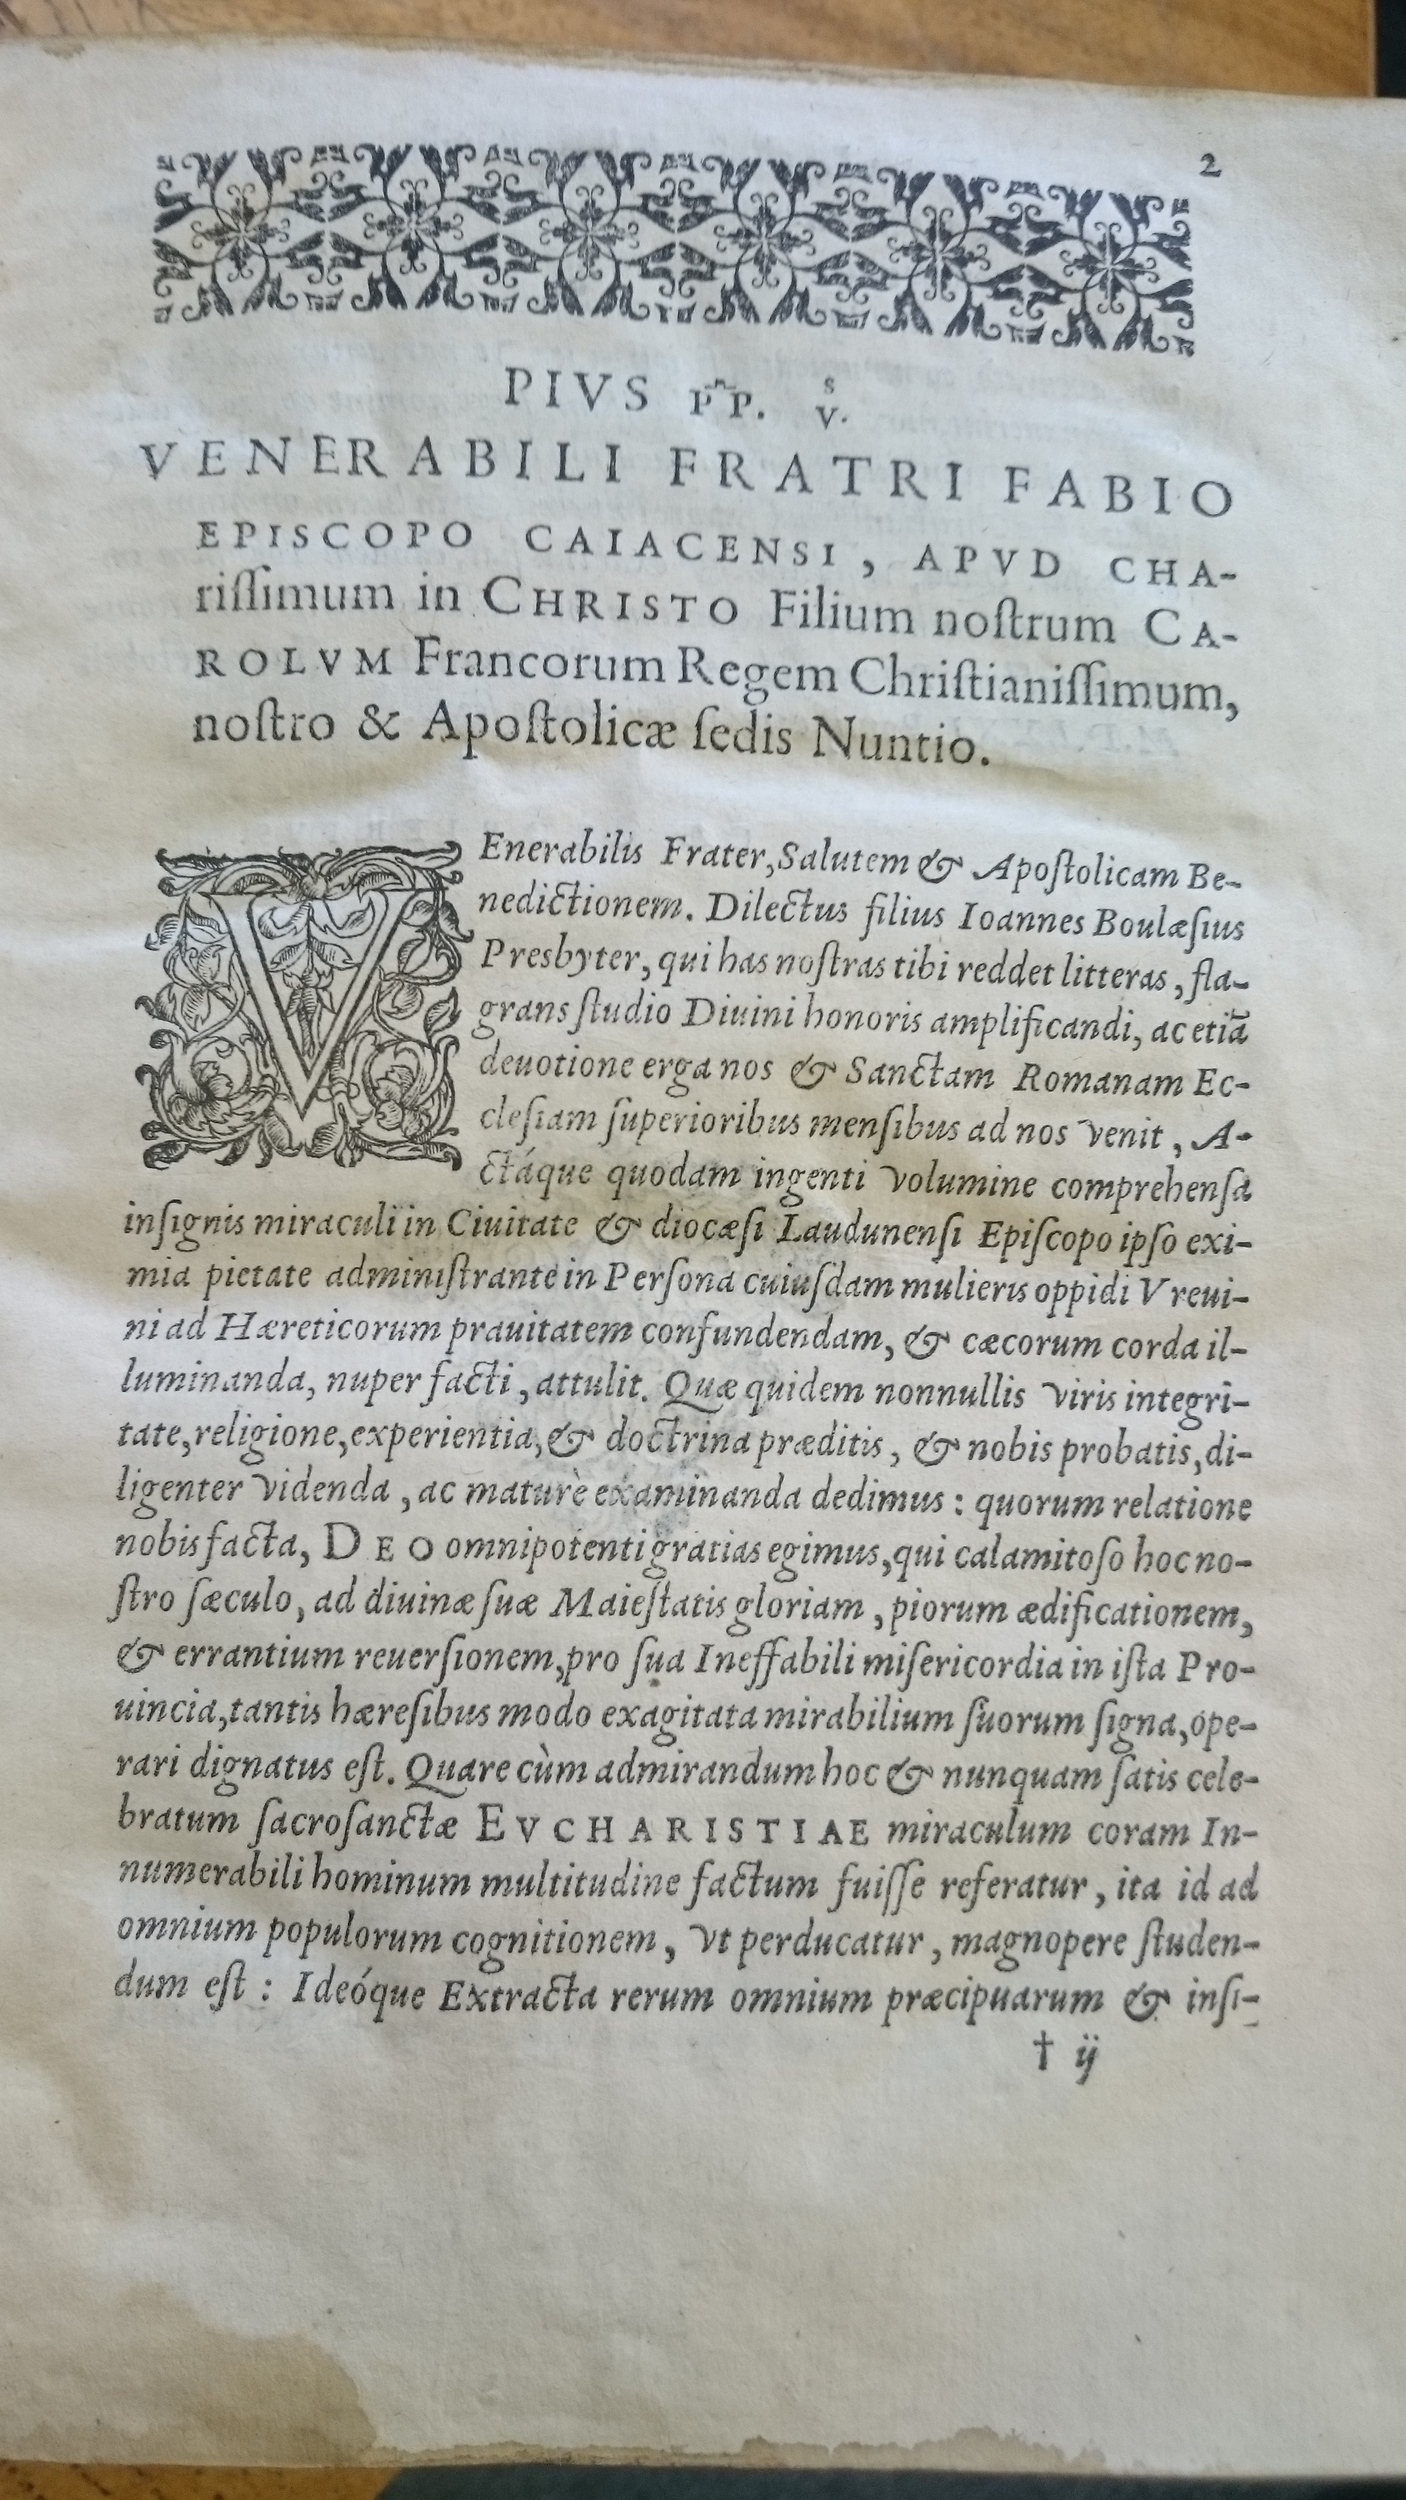 2
PIVS P̃P. Vˢ.
VENERABILI FRATRI FABIO
EPISCOPO CAIACENSI, APVD CHA-
riſſimum in CHRISTO Filium noſtrum CA-
ROLVM Francorum Regem Chriſtianiſſimum,
noſtro & Apoſtolicæ ſedis Nuntio.
VEnerabilis Frater, Salutem & Apoſtolicam Be-
nedictionem. Dilectus filius Ioannes Boulæſius
Presbyter, qui has noſtras tibi reddet litteras, fla-
grans ſtudio Diuini honoris amplificandi, ac etiā
deuotione erga nos & Sanctam Romanam Ec-
cleſiam ſuperioribus menſibus ad nos venit, A-
ctáque quodam ingenti volumine comprehenſa
inſignis miraculi in Ciuitate & diocæſi Laudunenſi Epiſcopo ipſo exi-
mia pietate adminiſtrante in Perſona cuiuſdam mulieris oppidi Vreui-
ni ad Hæreticorum prauitatem confundendam, & cæcorum corda il-
luminanda, nuper facti, attulit. Quæ quidem nonnullis viris integri-
tate, religione, experientia, & doctrina præditis, & nobis probatis, di-
ligenter videnda, ac maturè examinanda dedimus: quorum relatione
nobis facta, DEO omnipotenti gratias egimus, qui calamitoſo hoc no-
ſtro ſæculo, ad diuinæ ſuæ Maieſtatis gloriam, piorum ædificationem,
& errantium reuerſionem, pro ſua Ineffabili miſericordia in iſta Pro-
uincia, tantis hæreſibus modo exagitata mirabilium ſuorum ſigna, ope-
rari dignatus eſt. Quare cùm admirandum hoc & nunquam ſatis cele-
bratum ſacroſanctæ EVCHARISTIAE miraculum coram In-
numerabili hominum multitudine factum fuiſſe referatur, ita id ad
omnium populorum cognitionem, vt perducatur, magnopere ſtuden-
dum eſt: Ideóque Extracta rerum omnium præcipuarum & inſi-
† ij